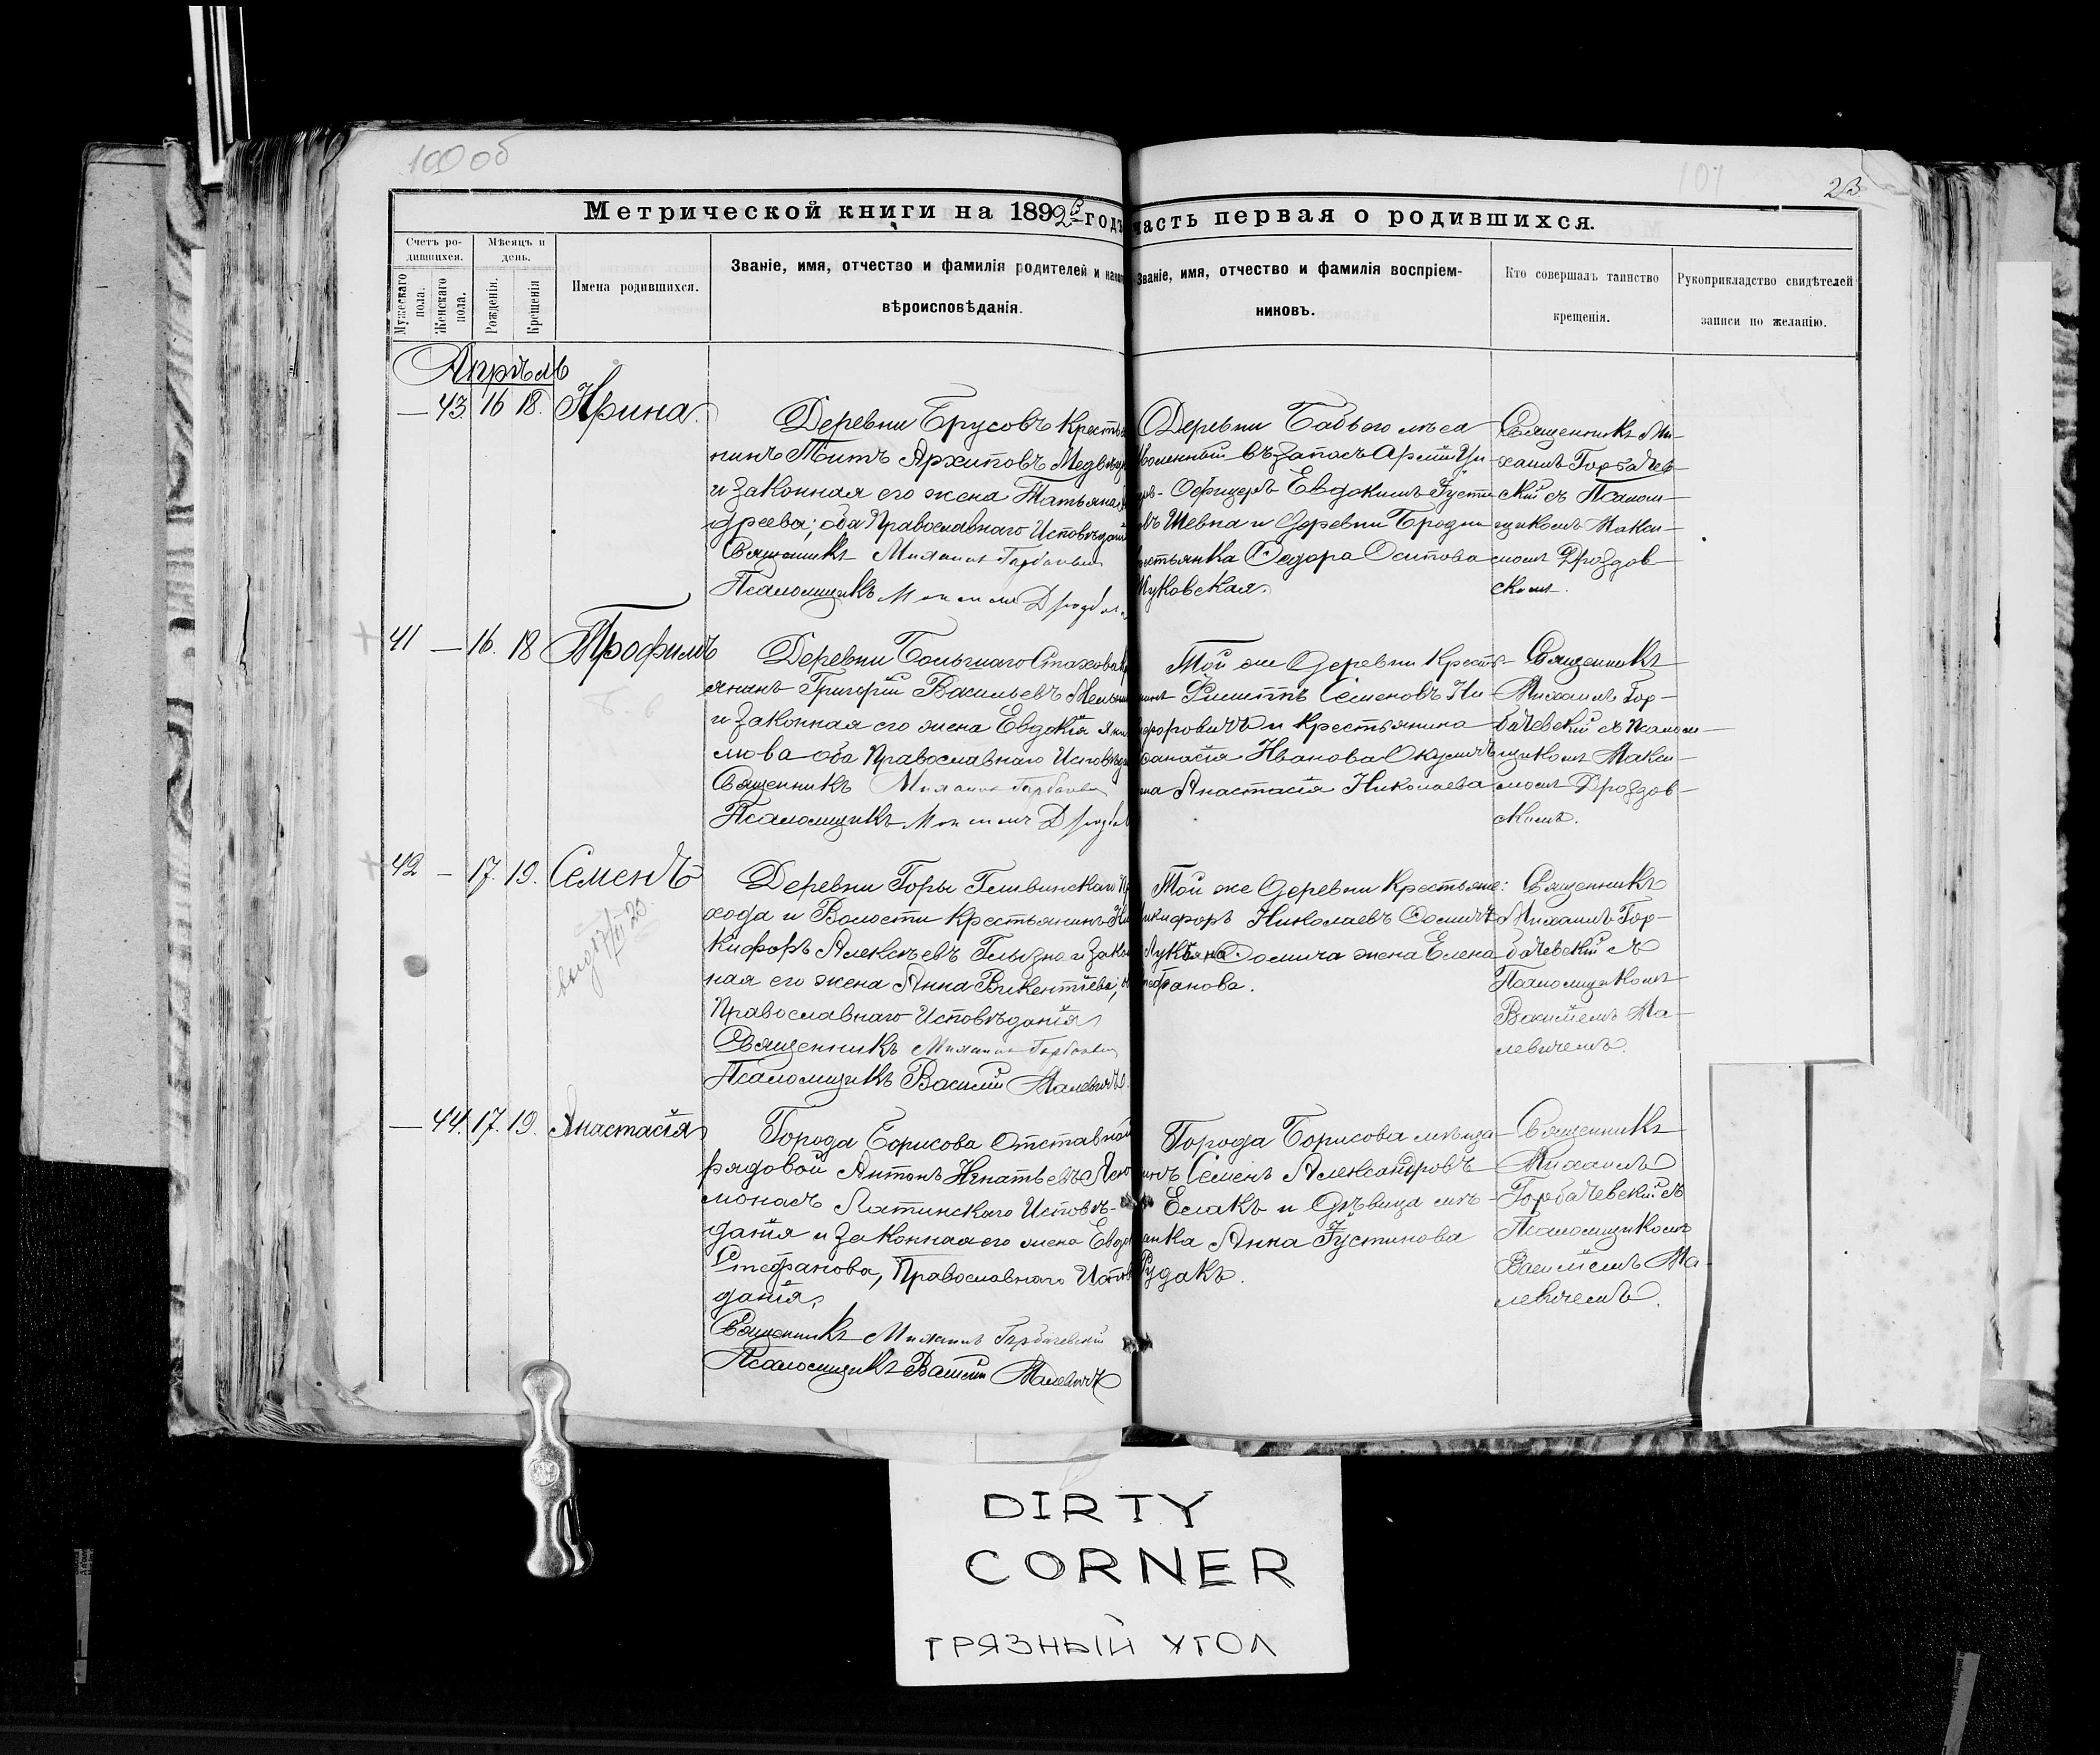 100 об
101
23
Метрической книги на 1892й годъ
часть первая о родившихся.
Счетъ ро-
дившихся.
Мѣсяцъ и
день.
Мужескаго
пола.
Женскаго
пола.
Рожденія.
Крещенія
Имена родившихся.
Званіе, имя, отчество и фамилія родителей и
вѣроисповѣданія.
Званіе, имя, отчество и фамилія воспріем-
никовъ.
Кто совершалъ таинство
крещенія.
Рукоприкладство свидѣтелей
записи по желанію.
Апрѣль
— 43 16 18. Ирина
Деревни Брусовъ Кресть
нинъ Титъ Архиповъ
и законная его жена Татьяна
дреева; оба Православнаго Исповѣдані
Священникъ Михаилъ Горбачевск
Псаломщикъ Максимъ Дроздов
Деревни Бабьего лѣса
воленный въ Запасъ Арміи Ун-
Офицеръ Евдокимъ Густи
въ Шевна и деревни Бродни
естьянка Ѳедора Осипова
Жуковская.
Священникъ Ми-
хаилъ Горбачев-
скій съ Псалом-
щикомъ Макси-
момъ Дроздов-
скимъ.
41 — 16. 18 Трофимъ
Деревни Большаго Стахова
янинъ Григорій Васильевъ
и законная его жена Евдокія
лова оба Православнаго Исповѣд
Священникъ Михаилъ Горбачев
Псаломщикъ Максимъ Дроздов
Той же деревни Кресть-
Филиппъ Семеновъ Ни-
форовичъ и крестьянина
фанасія Иванова Окулича
на Анастасія Николаева
Священникъ
Михаилъ Гор-
бачевскій съ Псалом-
щикомъ Макси-
момъ Дроздов-
скимъ.
42 — 17. 19. Семенъ
Деревни Горы Гливинскаго
хода и Волости Крестьянинъ Ни
кифоръ Алексѣевъ и закон
ная его жена Анна Викентіева;
Православнаго Исповѣданія
Священникъ Михаилъ Горбачевск
Псаломщикъ Василій Малевичъ
Той же деревни Крестьяне:
Никифоръ Николаевъ Ѳомичъ
Лукьяна Ѳомича жена Елена
тефанова.
Священникъ
Михаилъ Гор-
бачевскій съ
Псаломщикомъ
Василіемъ Ма-
левичемъ.
— 44. 17. 19. Анастасія
Города Борисова Отставной
рядовой Антонъ Игнатьевъ
Латинскаго Исповѣ-
данія и законная его жена Евдо
Стефанова, Православнаго Испов
данія.
Священникъ Михаилъ Горбачевскій
Псаломщикъ Василій Малевичъ
Города Борисова мѣща-
инъ Семенъ Александровъ
Еслакъ и дѣвица мѣ-
анка Анна Густинова
Рудакъ.
Священникъ
Михаилъ
Горбачевскій съ
Псаломщикомъ
Василіемъ Ма-
левичемъ.
DIRTY
CORNER
ГРЯЗНЫЙ УГОЛ